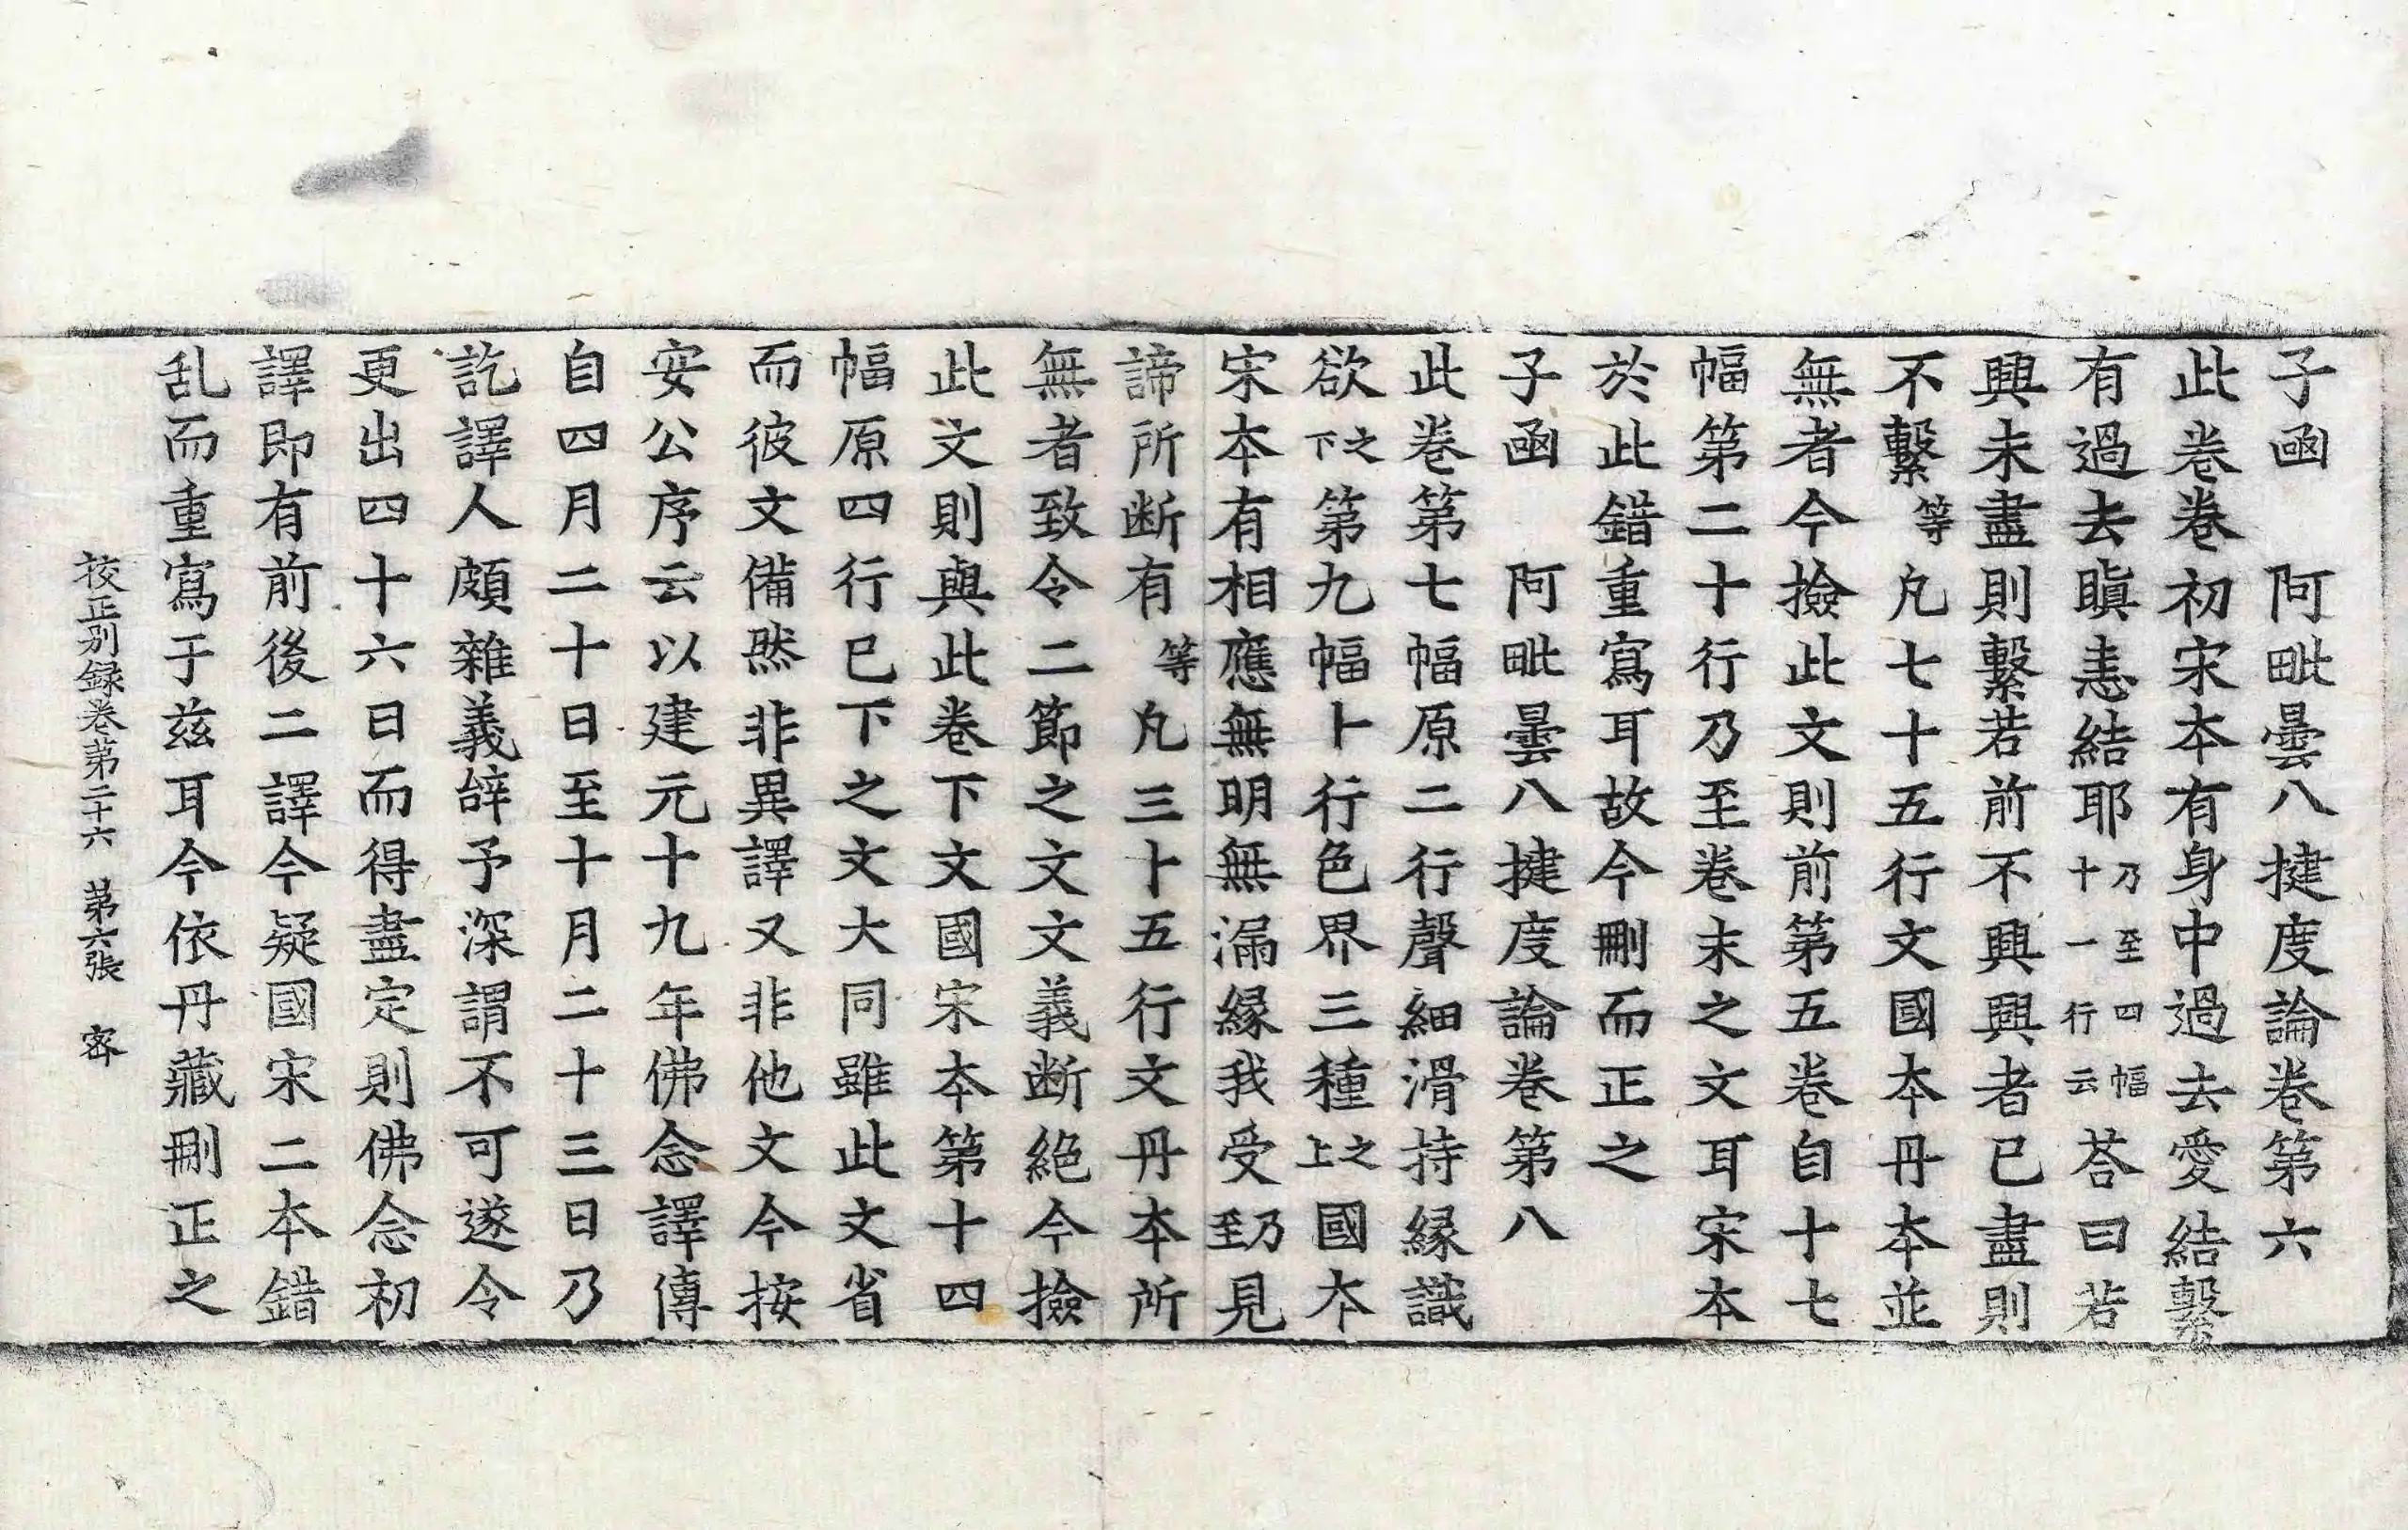 子函　阿毗曇八揵度論卷第六
此卷卷初宋本有身中過去愛結繫
有過去瞋恚結耶乃至四幅十一行云荅曰若
興未盡則繫若前前不興興者已盡則
不繫等凡七十五行文國本丹本並
無者今撿此文則前第五卷自十七
幅第二十行乃至卷末之文耳宋本
於此錯重寫耳故今刪而正之
子函　阿毗曇八揵度論卷第八
此卷第七幅原二行聲細滑持緣識
欲之下第九幅卜行色界三種之上國本
宋本有相應無明無漏緣我受乃至見
諦所断有等凡三卜五行文丹本所
無者致令二節之文文義断絕今撿
此文則與此卷下文國宋本第十四
幅原四行已下之文大同雖此文省
而彼文備然非異譯又非他文今按
安公序云以建元十九年佛念譯傳
自四月二十日至十月二十三日乃
訖譯人頗雜義辝予深謂不可遂令
更出四十六日而得盡定則佛念初
譯即有前後二譯今疑國宋二本錯
乱而重寫于兹耳今依丹藏刪正之
挍正别録卷第二十六　第六張　宻